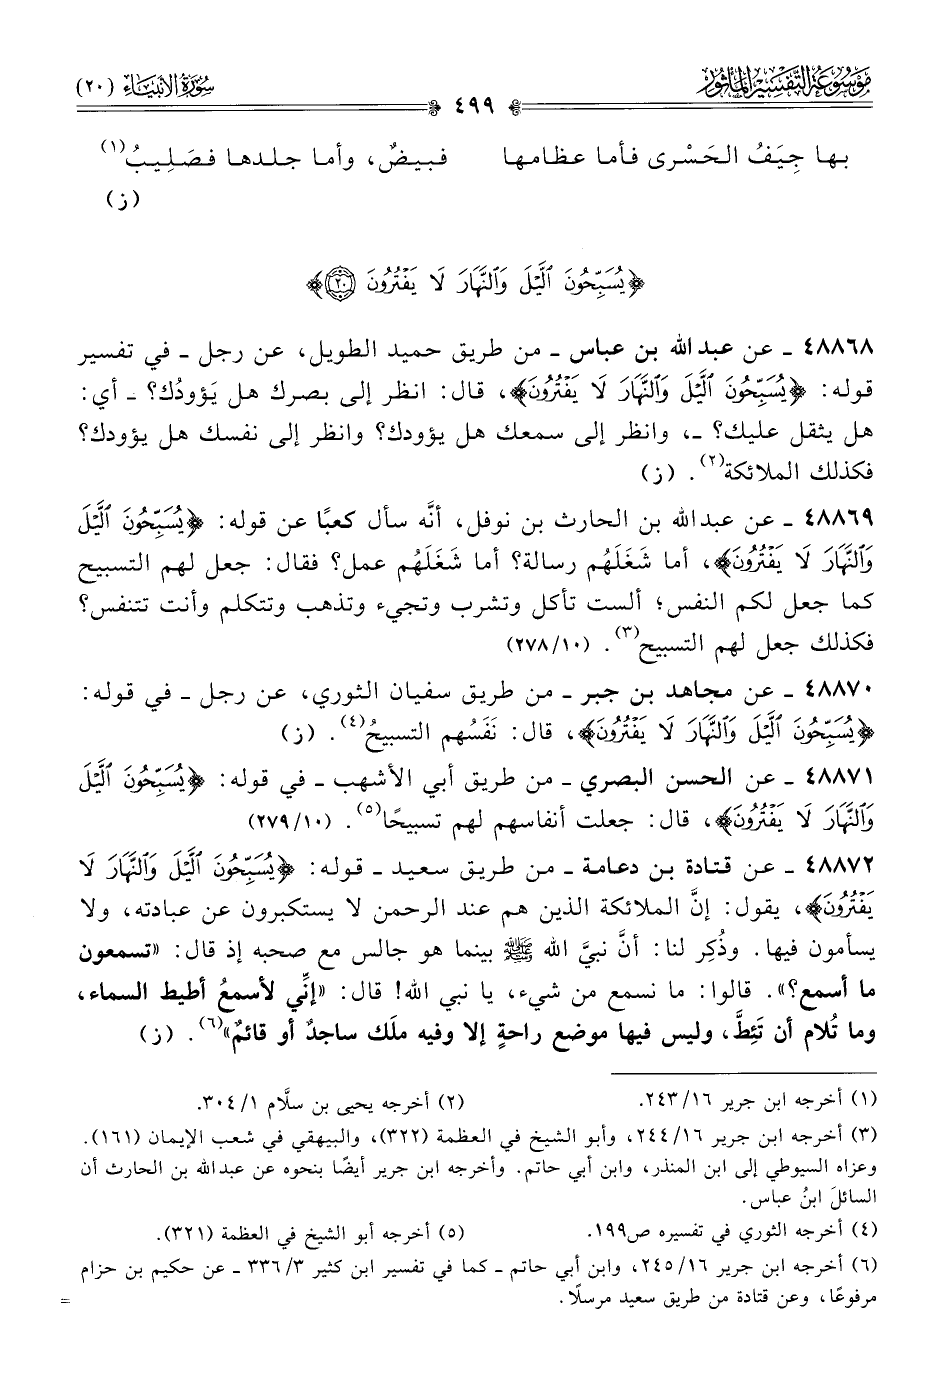 موسوعة التفسير المأثور
سورة الأنبياء (٢٠)
٤٩٩
بها جِيَفُ الحَسْرى فأما عظامها فبيضٌ، وأما جلدها فصَلِيبُ(١)
(ز)
﴿يُسَبِّحُونَ ٱلَّيْلَ وَٱلنَّهَارَ لَا يَفْتُرُونَ ٢٠﴾
٤٨٨٦٨ ـ عن عبد الله بن عباس ـ من طريق حميد الطويل، عن رجل ـ في تفسير
قوله: ﴿يُسَبِّحُونَ ٱلَّيْلَ وَٱلنَّهَارَ لَا يَفْتُرُونَ﴾، قال: انظر إلى بصرك هل يَؤودُك؟ ـ أي:
هل يثقل عليك؟ ـ، وانظر إلى سمعك هل يؤودك؟ وانظر إلى نفسك هل يؤودك؟
فكذلك الملائكة(٢). (ز)
٤٨٨٦٩ ـ عن عبد الله بن الحارث بن نوفل، أنَّه سأل كعبًا عن قوله: ﴿يُسَبِّحُونَ ٱلَّيْلَ
وَٱلنَّهَارَ لَا يَفْتُرُونَ﴾، أما شَغَلَهُم رسالة؟ أما شَغَلَهُم عمل؟ فقال: جعل لهم التسبيح
كما جعل لكم النفس؛ ألست تأكل وتشرب وتجيء وتذهب وتتكلم وأنت تتنفس؟
فكذلك جعل لهم التسبيح(٣). (٢٧٨/١٠)
٤٨٨٧٠ ـ عن مجاهد بن جبر ـ من طريق سفيان الثوري، عن رجل ـ في قوله:
﴿يُسَبِّحُونَ ٱلَّيْلَ وَٱلنَّهَارَ لَا يَفْتُرُونَ﴾، قال: نَفَسُهم التسبيحُ(٤). (ز)
٤٨٨٧١ ـ عن الحسن البصري ـ من طريق أبي الأشهب ـ في قوله: ﴿يُسَبِّحُونَ ٱلَّيْلَ
وَٱلنَّهَارَ لَا يَفْتُرُونَ﴾، قال: جعلت أنفاسهم لهم تسبيحًا(٥). (٢٧٩/١٠)
٤٨٨٧٢ ـ عن قتادة بن دعامة ـ من طريق سعيد ـ قوله: ﴿يُسَبِّحُونَ ٱلَّيْلَ وَٱلنَّهَارَ لَا
يَفْتُرُونَ﴾، يقول: إنَّ الملائكة الذين هم عند الرحمن لا يستكبرون عن عبادته، ولا
يسأمون فيها. وذُكِر لنا: أنَّ نبيَّ الله ﷺ بينما هو جالس مع صحبه إذ قال: «تسمعون
ما أسمع؟». قالوا: ما نسمع من شيء، يا نبي الله! قال: «إنِّي لأسمعُ أطيط السماء،
وما تُلام أن تَئِطَّ، وليس فيها موضع راحةٍ إلا وفيه ملَك ساجدٌ أو قائمٌ»(٦). (ز)
(١) أخرجه ابن جرير ٢٤٣/١٦.
(٢) أخرجه يحيى بن سلَّام ٣٠٤/١.
(٣) أخرجه ابن جرير ٢٤٤/١٦، وأبو الشيخ في العظمة (٣٢٢)، والبيهقي في شعب الإيمان (١٦١).
وعزاه السيوطي إلى ابن المنذر، وابن أبي حاتم. وأخرجه ابن جرير أيضًا بنحوه عن عبد الله بن الحارث أن
السائلَ ابنُ عباس.
(٤) أخرجه الثوري في تفسيره ص١٩٩.
(٥) أخرجه أبو الشيخ في العظمة (٣٢١).
(٦) أخرجه ابن جرير ٢٤٥/١٦، وابن أبي حاتم ـ كما في تفسير ابن كثير ٣٣٦/٣ ـ عن حكيم بن حزام
مرفوعًا، وعن قتادة من طريق سعيد مرسلًا. =